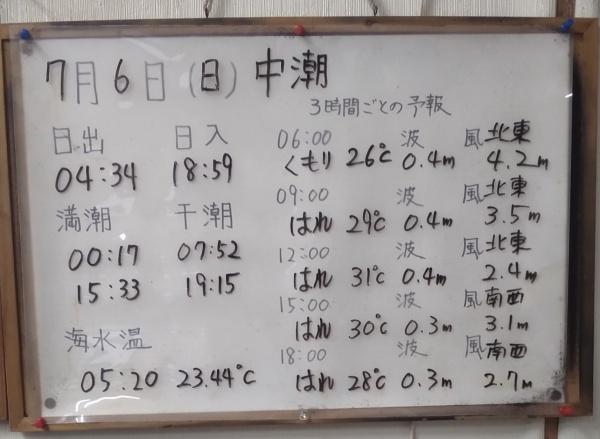 7月6日(日)中潮
日出 日入
04:34 18:59
満潮 干潮
00:17 07:52
15:33 19:15
海水温
05:20 23.44℃
3時間ごとの予報
06:00 波 風北東
くもり 26℃ 0.4m 4.2m
09:00 波 風北東
はれ 29℃ 0.4m 3.5m
12:00 波 風北東
はれ 31℃ 0.4m 2.4m
15:00 波 風南西
はれ 30℃ 0.3m 3.1m
18:00 波 風南西
はれ 28℃ 0.3m 2.7m